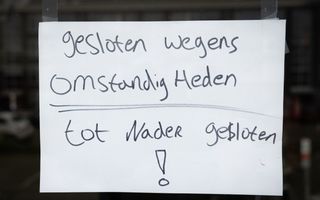 gesloten wegens
omstandigHeden
tot Nader gesloten
!